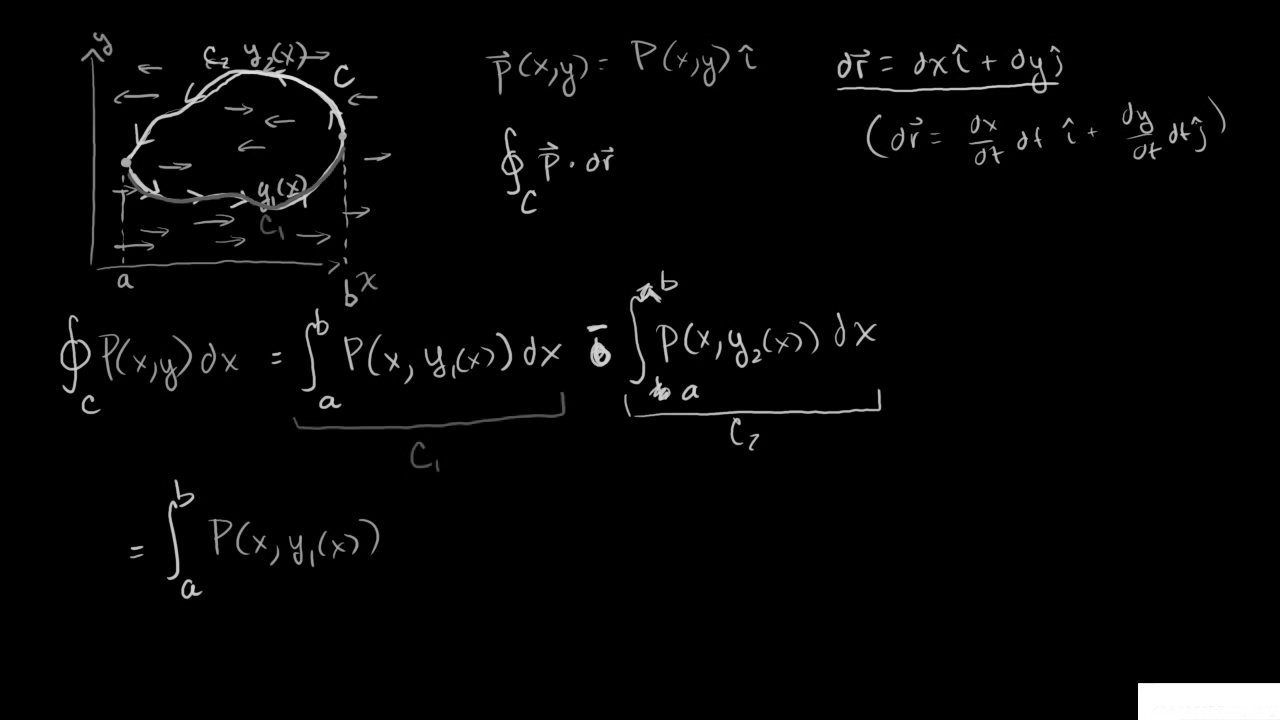 y
C₂ y₂(x)
C
y₁(x)
C₁
a
b
x
p⃗(x,y) = P(x,y) î
∮_C p⃗ · dr⃗
dr⃗ = dx î + dy ĵ
(dr⃗ = dx/dt dt î + dy/dt dt ĵ)
∮_C P(x,y) dx = ∫_a^b P(x, y₁(x)) dx - ∫_a^b P(x, y₂(x)) dx
C₁
C₂
= ∫_a^b P(x, y₁(x))